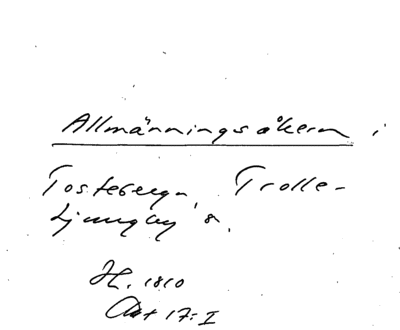 Allmänningsåkern i
Tosteberga, Trolle-
Ljungby s.
H. 1810
Akt 17: I